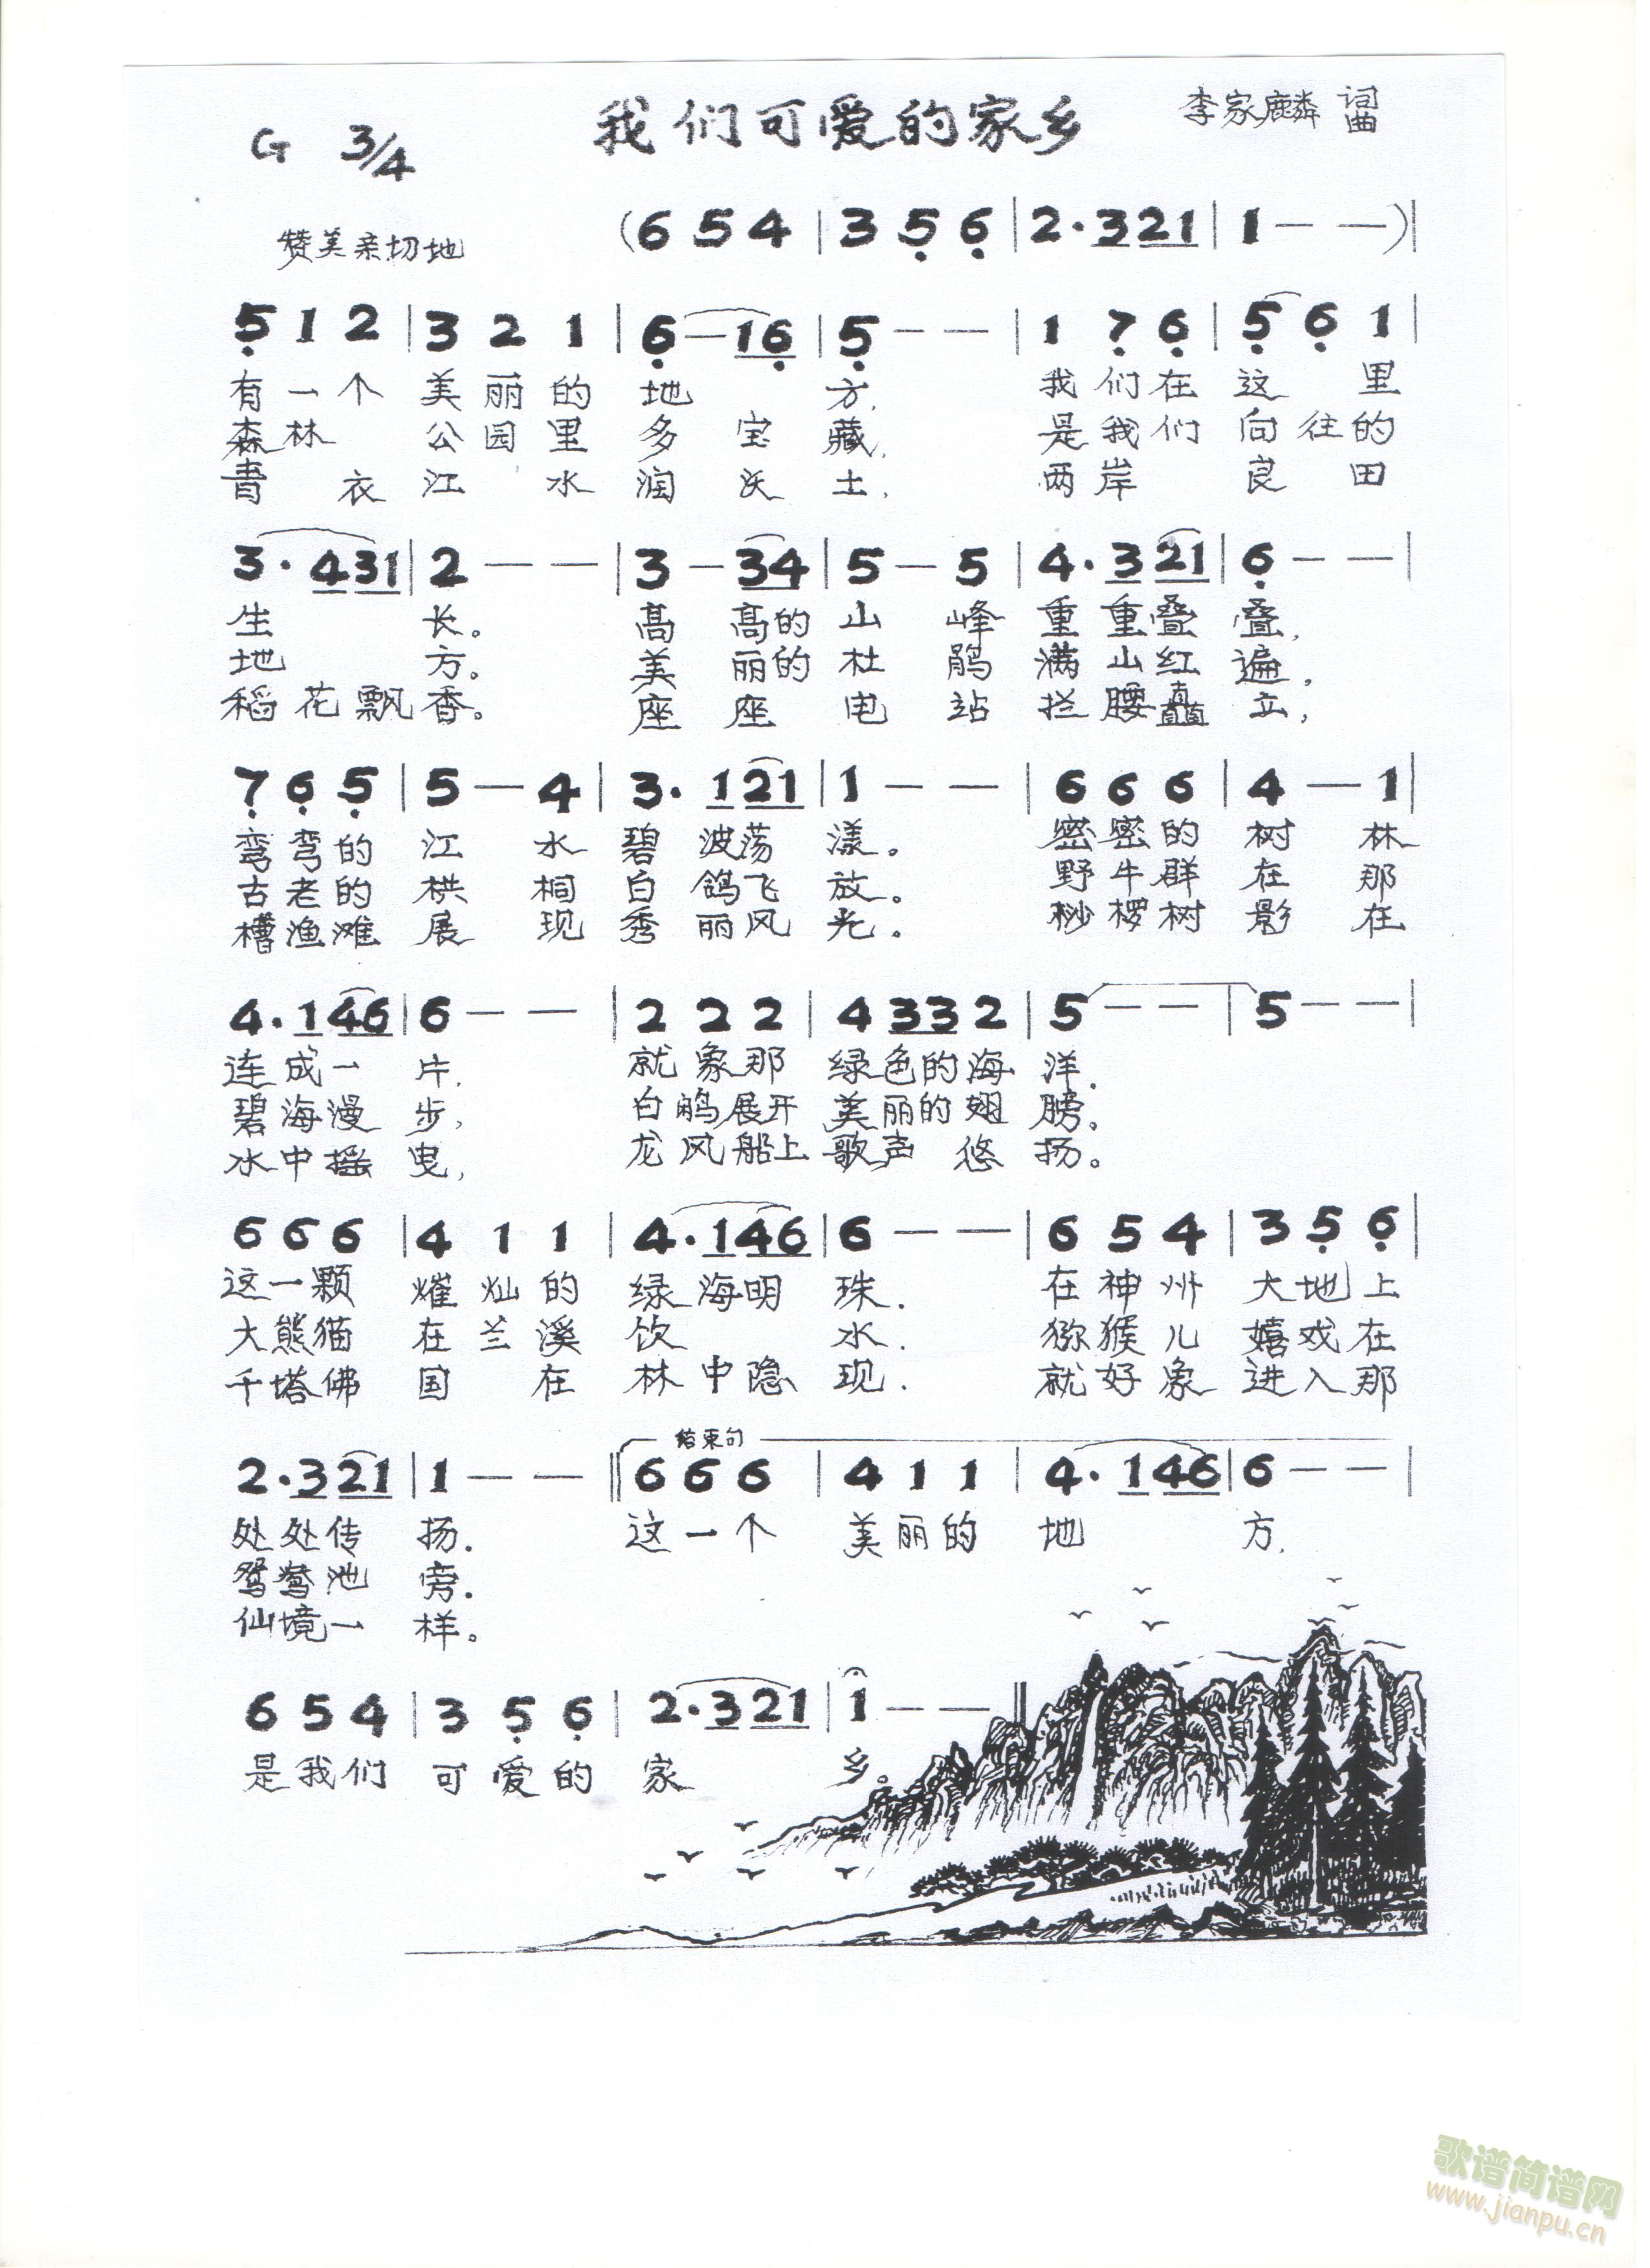 我们可爱的家乡
李家麟 词曲
G 3/4
赞美亲切地
(6 5 4 | 3 5̣ 6̣ | 2·3 2 1 | 1 — — )|
5̣ 1 2 | 3 2 1 | 6̣ — 1 6̣ | 5̣ — — | 1 7̣ 6̣ | 5̣ 6̣ 1 |
有一个 美丽的 地 方, 我们在 这 里
森林 公园里 多 宝 藏, 是我们 向往的
青 衣 江 水 润 沃 土, 两岸 良 田
3·4 3 1 | 2 — — | 3 — 3 4 | 5 — 5 | 4·3 2 1 | 6̣ — — |
生 长。 高 高的 山 峰 重重叠 叠,
地 方。 美 丽的 杜 鹃 满山红 遍,
稻花飘 香。 座 座 电 站 拦腰矗 立,
7̣ 6̣ 5̣ | 5 — 4 | 3· 1 2 1 | 1 — — | 6 6 6 | 4 — 1 |
弯弯的 江 水 碧 波荡 漾。 密密的 树 林
古老的 栱 桐 白 鸽飞 放。 野牛群 在 那
槽渔滩 展 现 秀 丽风 光。 桫椤树 影 在
4·1 4 6 | 6 — — | 2 2 2 | 4 3 3 2 | 5 — — | 5 — — |
连成一 片, 就象那 绿色的海 洋.
碧海漫 步, 白鹇展开 美丽的翅 膀。
水中摇 曳, 龙风船上 歌声 悠 扬。
6 6 6 | 4 1 1 | 4·1 4 6 | 6 — — | 6 5 4 | 3 5̣ 6̣ |
这一颗 灿的 绿海明 珠. 在神州 大地上
大熊猫 在兰溪 饮 水. 猕猴儿 嬉戏在
千塔佛 国 在 林中隐 现. 就好象 进入那
2·3 2 1 | 1 — — ‖ 结束句 6 6 6 | 4 1 1 | 4·1 4 6 | 6 — — |
处处传 扬. 这一个 美丽的 地 方,
鸳鸯池 旁.
仙境一 样。
6 5 4 | 3 5̣ 6̣ | 2·3 2 1 | 1 — — ‖
是我们 可爱的 家 乡。
歌谱简谱网
www.jianpu.cn